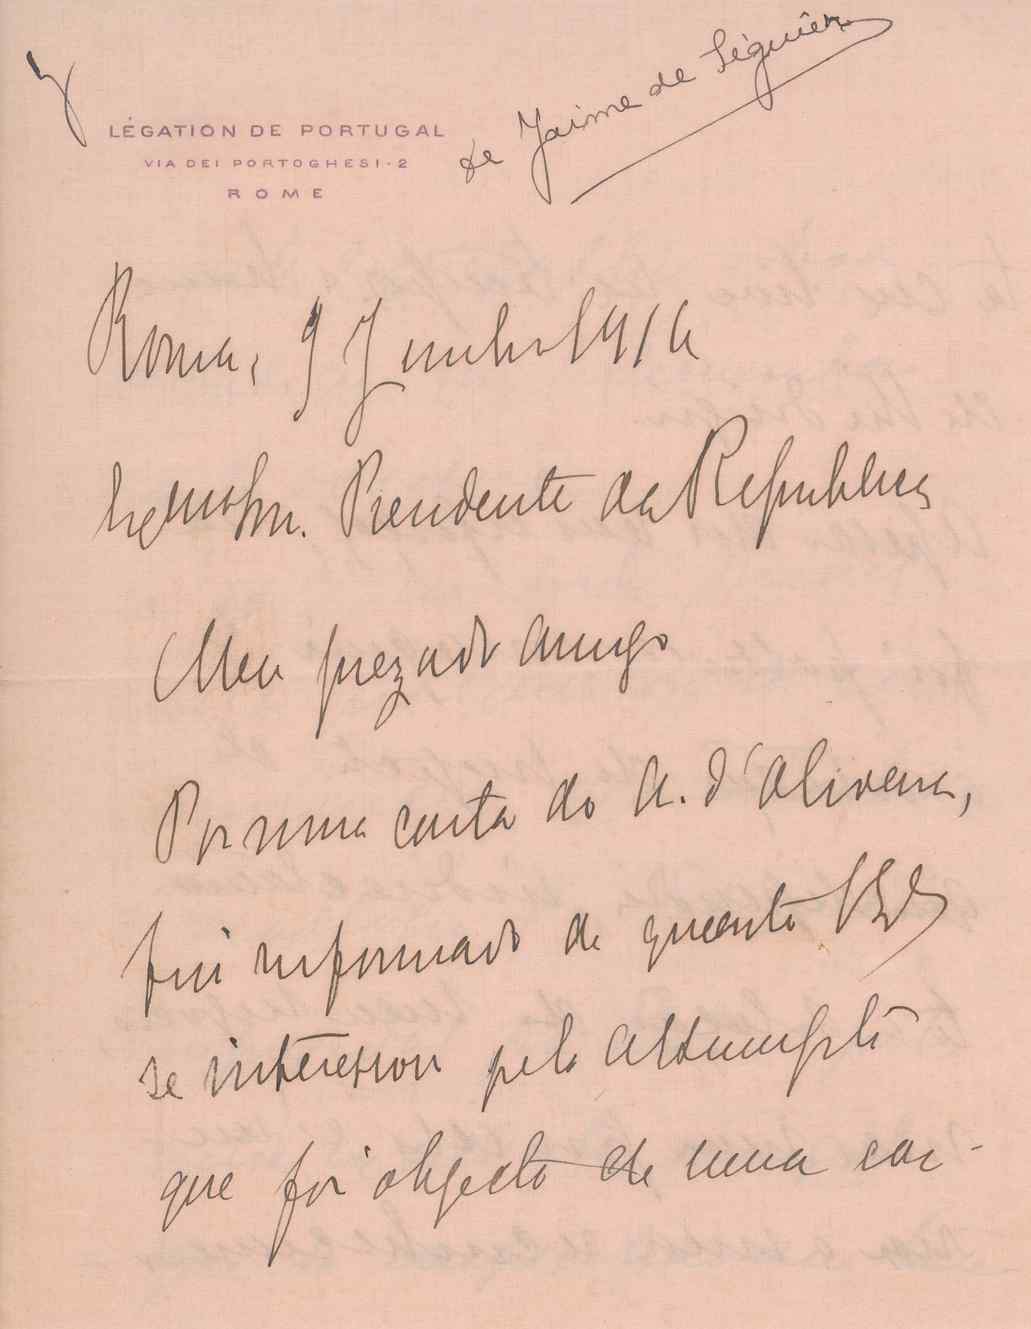 de Jaime de Séguier
LÉGATION DE PORTUGAL
VIA DEI PORTOGHESI-2
ROME
Roma, 9 Junho 1914
Exmo Snr. Presidente da Republica
Meu prezado amigo
Por uma carta do A. d'Oliveira,
fui informado de quanto V. Ex.
se interessou pelo assumpto
que foi objecto de uma car-